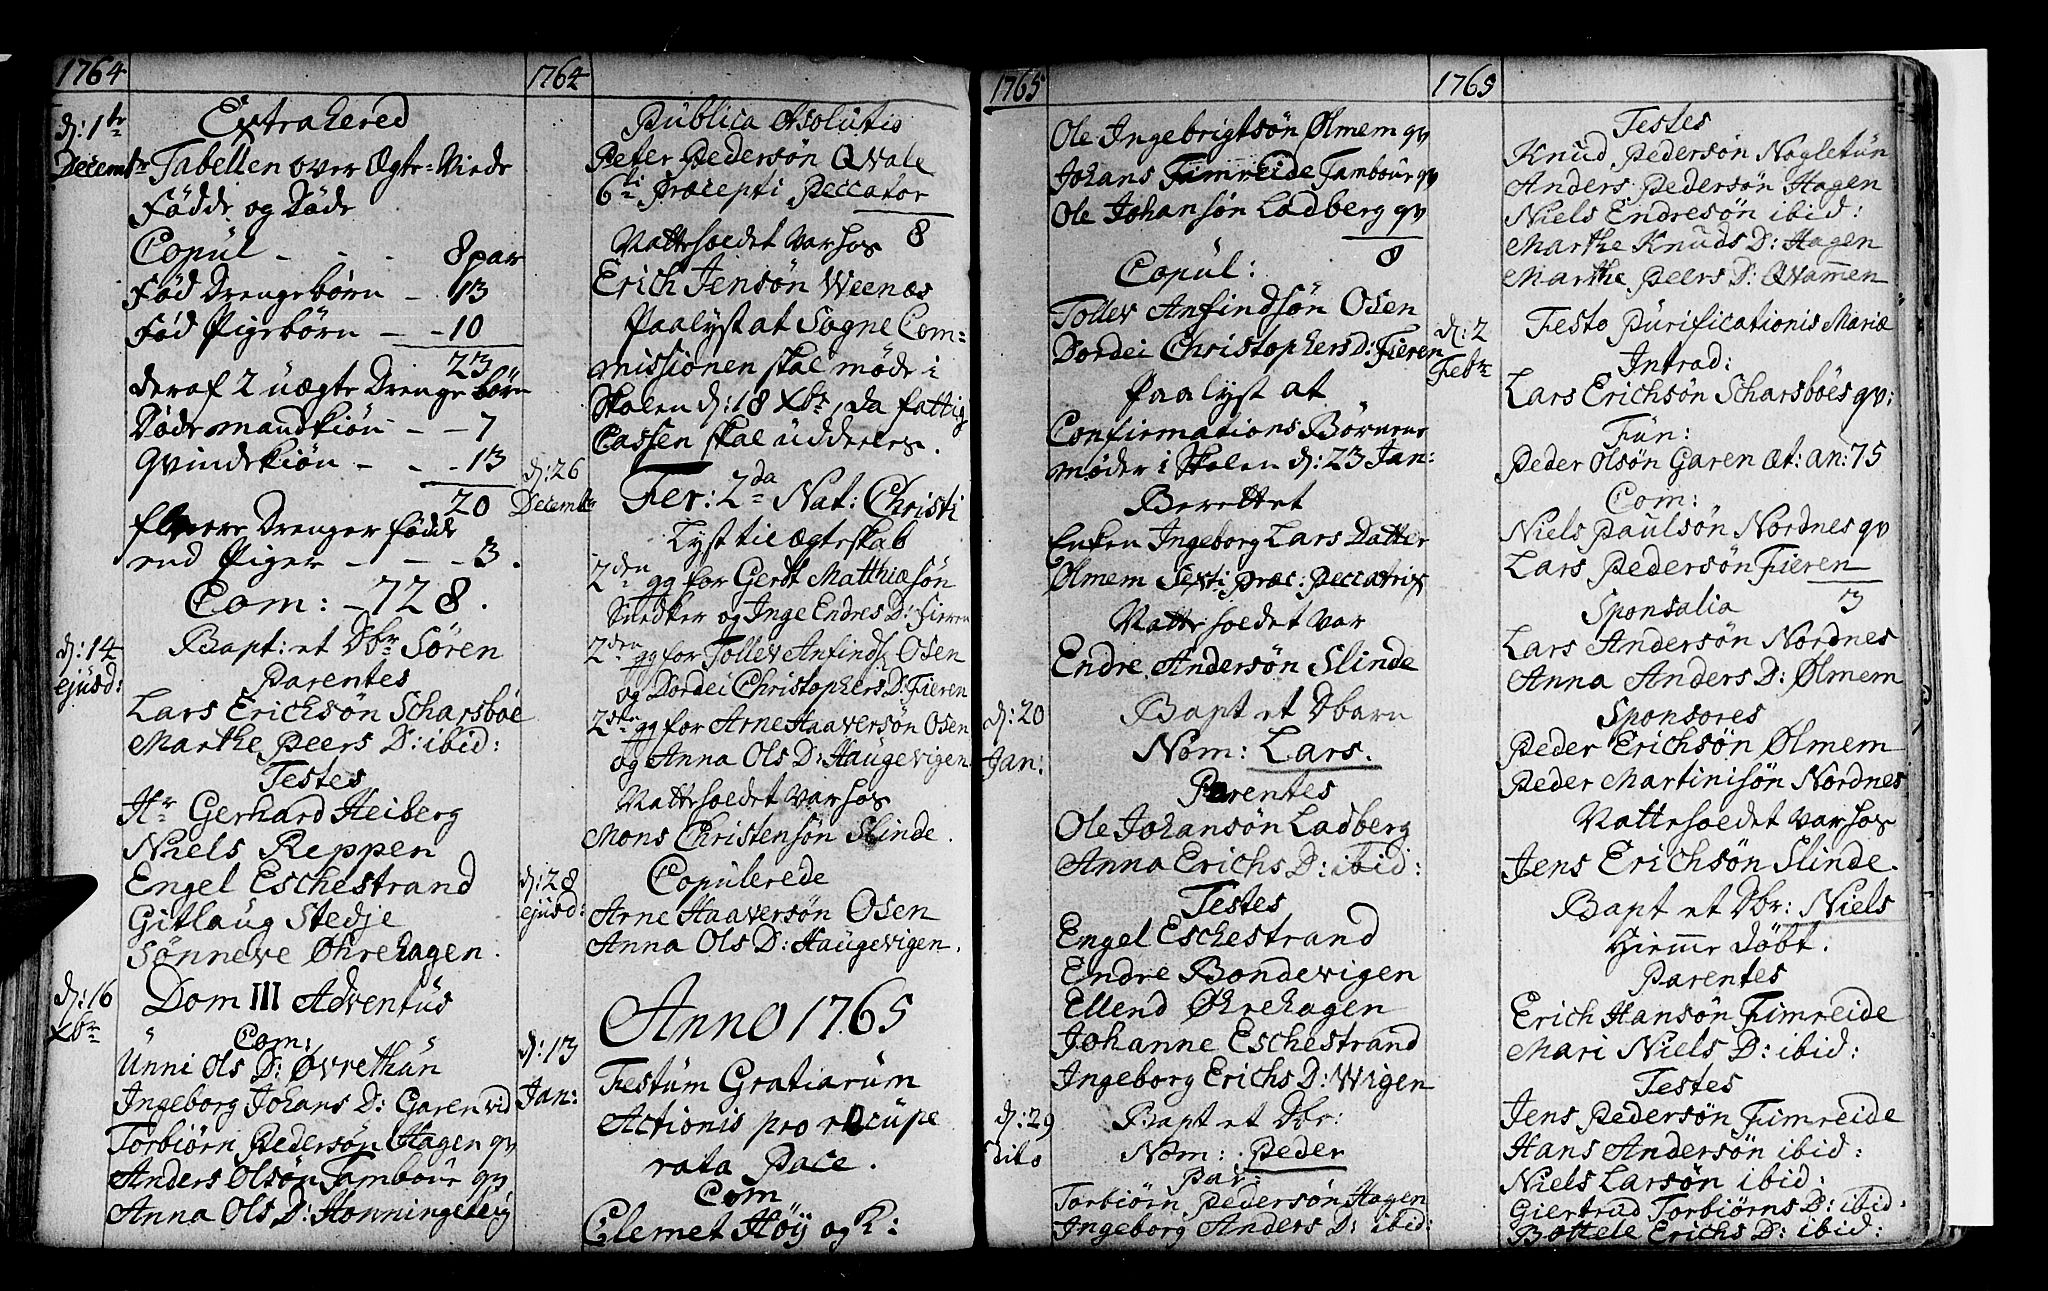 1764
d: 1te Decembr
Extrahered
Tabellen over Ægte-Viede
Fødde og Døde
Copul - - - 8 par
Fød Drengebørn - 13
Fød Pigebørn - - 10
23
deraf 2 uægte Drengebørn
Døde mandkiøn - - 7
Qvindekiøn - - - 13
20
fleere Drenger fødde
end Piger - - - 3.
Com: - 728.
d: 14 ejusd:
Bapt: et Dbr Sören
Parentes
Lars Erichsön Scharsböe
Marthe Peers D: ibid:
Testes
Hr Gerhard Heiberg
Niels Reppen
Engel Eschestrand
Gitlaug Stedje
Sönneve Øhrehagen.
d: 16 Xbr
Dom III Adventus
Com:
Unni Ols D: Øvrethun
Ingeborg Johans D: Garen vid
Torbiörn Pedersön Hagen qv
Anders Olsön Tambour qv
Anna Ols D: Honningeteig
1764
Publica Absolutis
Peter Pedersön Qvale
6ti Præcepti Peccator
8
Natteholdet var hos
Erich Jensön Weenæs
Paalyst at Sogne Com=
missionen skal møde i
Skolen d: 18 Xbr, da fattig
Cassen skal uddeeles.
d: 26 Decembr
Fer: 2da Nat: Christi
Lyst til Ægteskab
2den gg for Gerdt Matthiæsön
Snedker og Inge Endres D: Fieren
2den gg for Tollev Anfinds: Osen
og Dordei Christophers D: Fieren
2den gg for Arne Haaversön Osen
og Anna Ols D: Haugevigen.
Natteholdet var hos
Mons Christensön Slinde.
d: 28 ejusd:
Copulerede
Arne Haaversön Osen
Anna Ols D: Haugevigen.
Anno 1765
d: 13 Jan:
Festum Gratiarum
Actionis pro recupe
rata Pace.
Com
Clemet Höy og K:
1765
Ole Ingebrigtsön Ølmem qv
Johans Fimreide Tambour qv
Ole Johansön Ladberg qv
8
Copul:
Tollev Anfindsön Osen
Dordei Christophers D: Fieren
Paalyst at
Confirmations Børnene
møder i Skolen d: 23 Jan:
Berettet
Enken Ingeborg Lars Datter
Ølmem Sexti præc: Peccatrix
Natteholdet var
Endre Andersön Slinde
d: 20 Jan:
Bapt et Dbarn
Nom: Lars.
Parentes
Ole Johansön Ladberg
Anna Erichs D: ibid:
Testes
Engel Eschestrand
Endre Bondevigen
Ellend Øhrehagen
Johanne Eschestrand
Ingeborg Erichs D: Wigen
d: 29 dito
Bapt et Dbr:
Nom: Peder
Par:
Torbiörn Pedersön Hagen
Ingeborg Anders D: ibid:
1765
Testes
Knud Pedersön Nagletun
Anders Pedersön Hagen
Niels Endresön ibid:
Marthe Knuds D: Hagen
Marthe Peers D: Qvammen
d: 2 Febr
Festo Purificationis Mariæ
Introd:
Lars Erichsön Scharsböes qv:
Fun:
Peder Olsön Garen æt: an: 75
Com:
Niels Paulsön Nordnes qv
Lars Pedersön Fieren
3
Sponsalia
Lars Andersön Nordnes
Anna Anders D: Ølmem
Sponsores
Peder Erichsön Ølmem
Peder Martinisön Nordnes
Natteholdet var hos
Jens Erichsön Slinde.
Bapt et Dbr: Niels
Hiemme døbt.
Parentes
Erich Hansön Fimreide
Mari Niels D: ibid:
Testes
Jens Pedersön Fimreide
Hans Andersön ibid:
Niels Larsön ibid:
Giertrud Torbiörns D: ibid:
Bottele Erichs D: ibid: